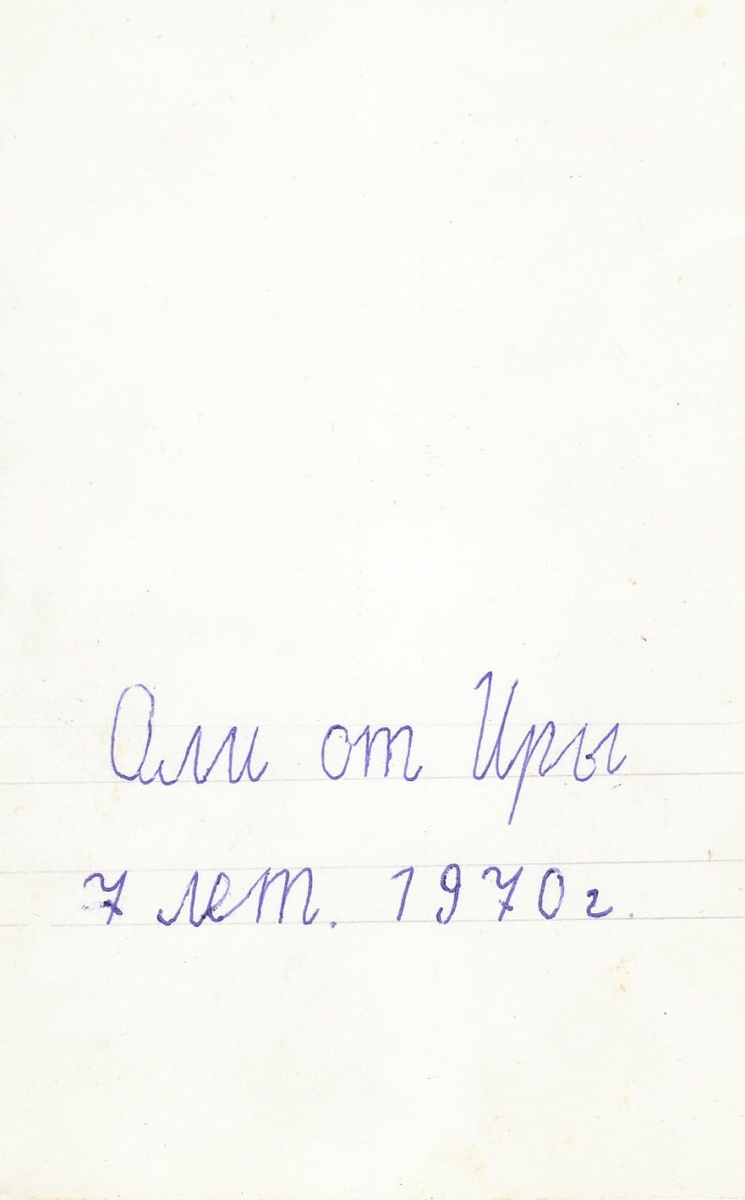 Оли от Иры
7 лет. 1970 г.